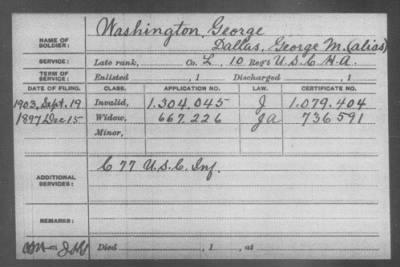 NAME OF SOLDIER: Washington, George
Dallas, George M. (alias)
SERVICE: Late rank, Co. L, 10 Reg't U.S.C.H.A.
TERM OF SERVICE: Enlisted , 1 Discharged , 1
DATE OF FILING. CLASS. APPLICATION NO. LAW. CERTIFICATE NO.
1903, Sept. 19 Invalid, 1.304.045 J 1.079.404
1897 Dec 15 Widow, 667.226 JA 736591
Minor,
ADDITIONAL SERVICES: C 77 U.S.C. Inf.
REMARKS:
Died , 1 , at